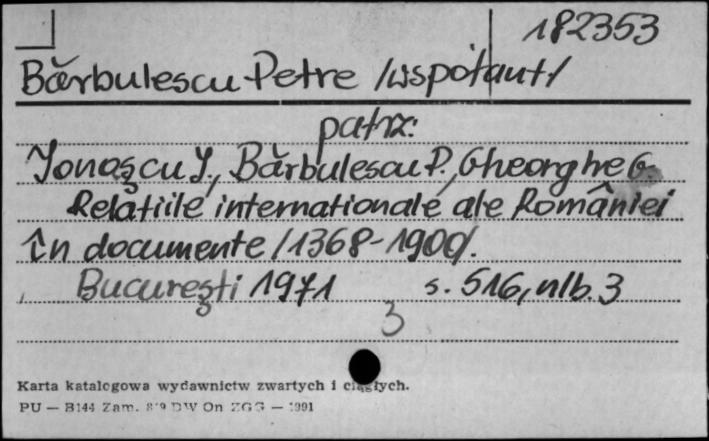 182353
Bărbulescu Petre /współaut/
patrz:
Ionaşcu I., Bărbulescu P., Gheorghe G.
Relaţiile internaţionale ale României
în documente /1368-1900/.
Bucureşti 1971 s. 516, nlb. 3
3
Karta katalogowa wydawnictw zwartych i ciągłych.
PU — B144 Zam. DW On ZGG — 1991